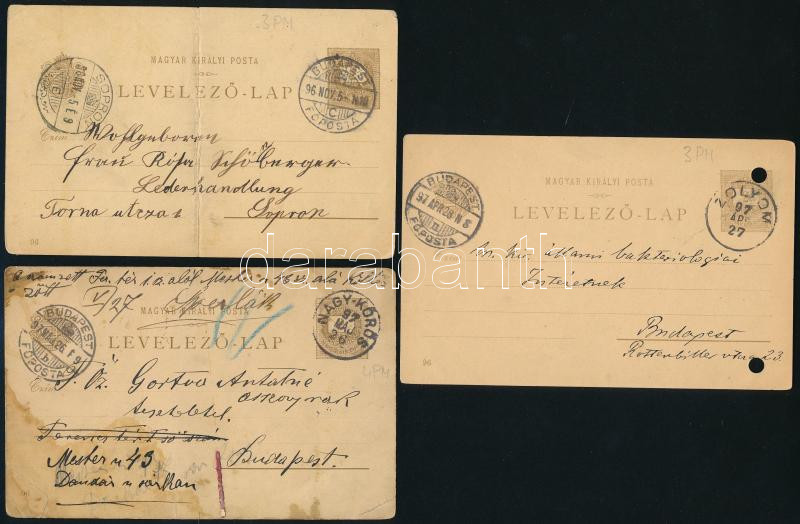 3PM
MAGYAR KIRÁLYI POSTA
LEVELEZŐ-LAP
SOPRON
96 NOV. 5 E 9
BUDAPEST
96 NOV. 5
FŐPOSTA
Czím
Wohlgeboren
Frau Rósa Schöberger
Lederhandlung
Torna utcza 1
Sopron
96
3PM
MAGYAR KIRÁLYI POSTA
LEVELEZŐ-LAP
BUDAPEST
97 APR. 28 N 8
FŐPOSTA
ZÓLYOM
97
APR
27
állami bakteriologiai
Intézetnek
Budapest
Rottenbiller utcza 23.
96
V/27
MAGYAR KIRÁLYI POSTA
LEVELEZŐ-LAP
BUDAPEST
FŐPOSTA
NAGY-KŐRÖS
97
MAJ
26
4PM
Özv. Gortva Antalné
Mester u 43
Budapest.
Dandár u sarkan
darabanth